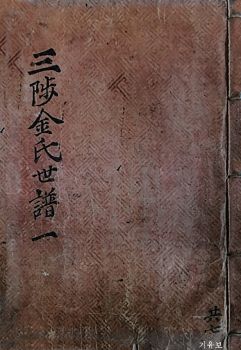 三陟金氏世譜一
共七
기유보